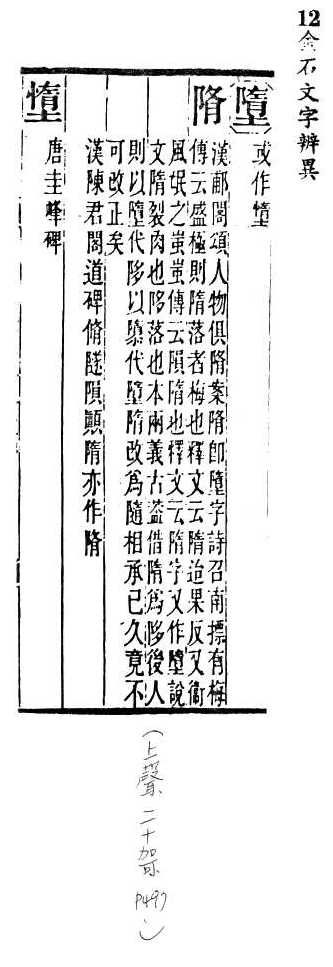 12金石文字辨異
墮
或作墯
隋
漢郙閣頌人物俱隋案隋即墮字詩召南摽有梅
傳云盛極則隋落者梅也釋文云隋迨果反又衞
風氓之蚩蚩傳云隕隋也釋文云隋字又作墮說
文隋裂肉也陊落也本兩義古葢借隋為陊後人
則以墮代陊以隳代墮隋改為隨相承已久竟不
可改正矣
漢陳君閣道碑脩隧隕顛隋亦作隋
墯
唐圭峰碑
(上聲 二十哿 P497)